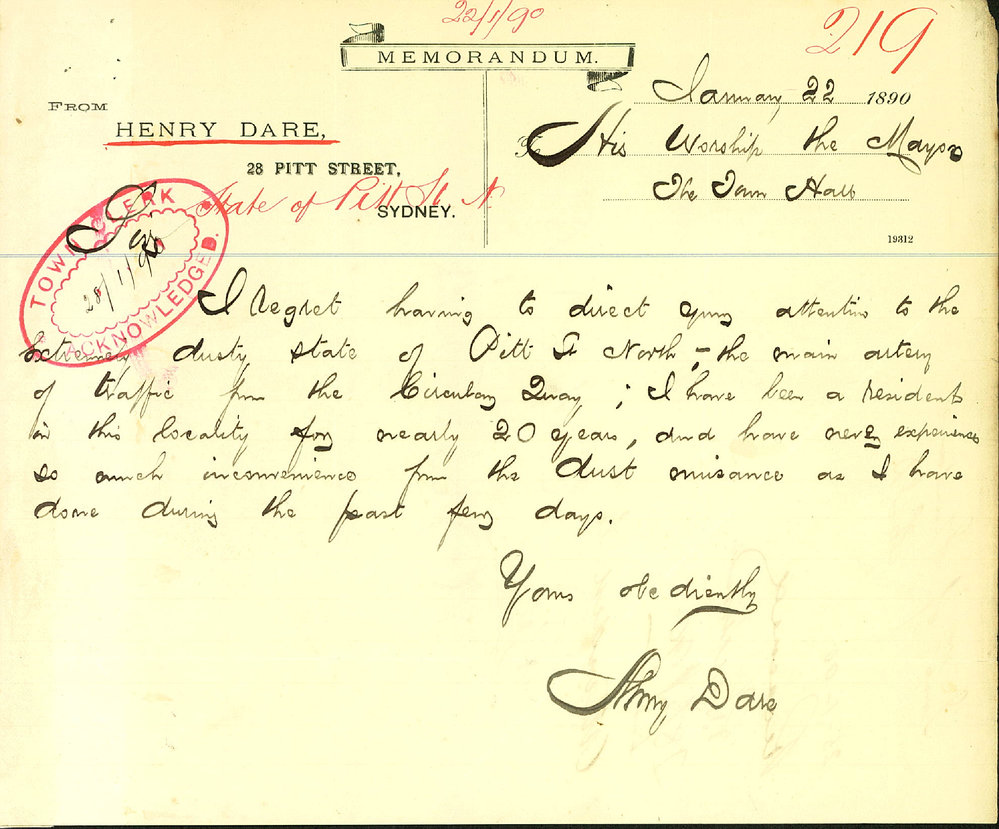 22/1/90
219
MEMORANDUM.
January 22 1890
FROM
HENRY DARE,
28 PITT STREET,
SYDNEY.
State of Pitt St N.
To His Worship the Mayor
The Town Hall
19312
TOWN CLERK
28/1/90
ACKNOWLEDGED.
I regret having to direct your attention to the
extremely dusty state of Pitt St North, - the main artery
of traffic from the Circular Quay; I have been a resident
in this locality for nearly 20 years, and have never experienced
so much inconvenience from the dust nuisance as I have
done during the past few days.
Yours obediently
Henry Dare